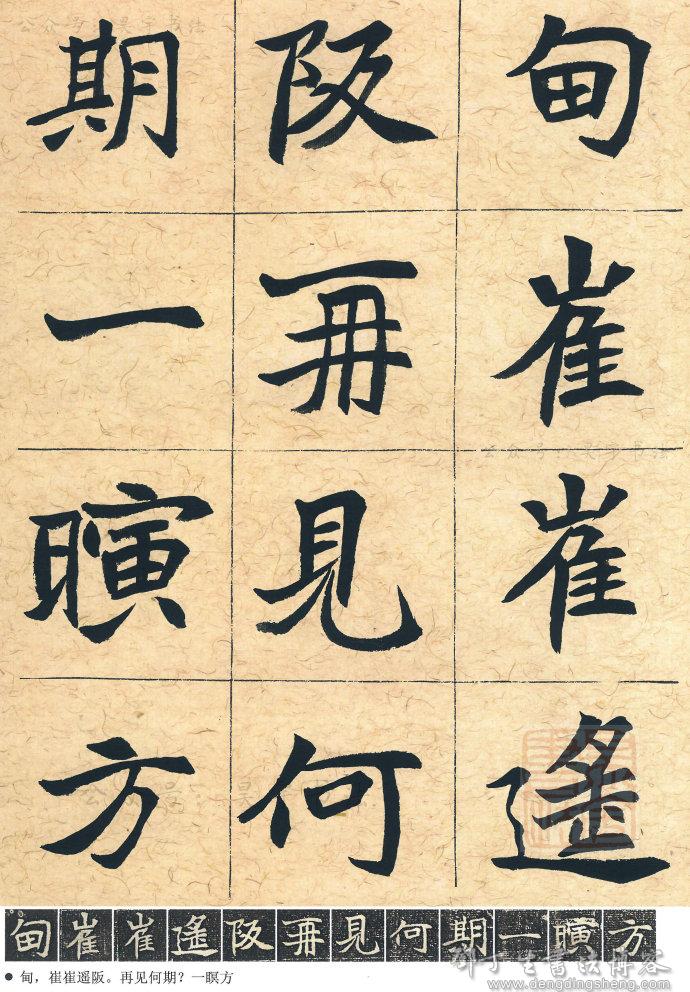 甸崔崔遙
阪再見何
期一瞑方
甸崔崔遙阪再見何期一瞑方
● 甸，崔崔遥阪。再见何期？一瞑方
www.dengdingsheng.com